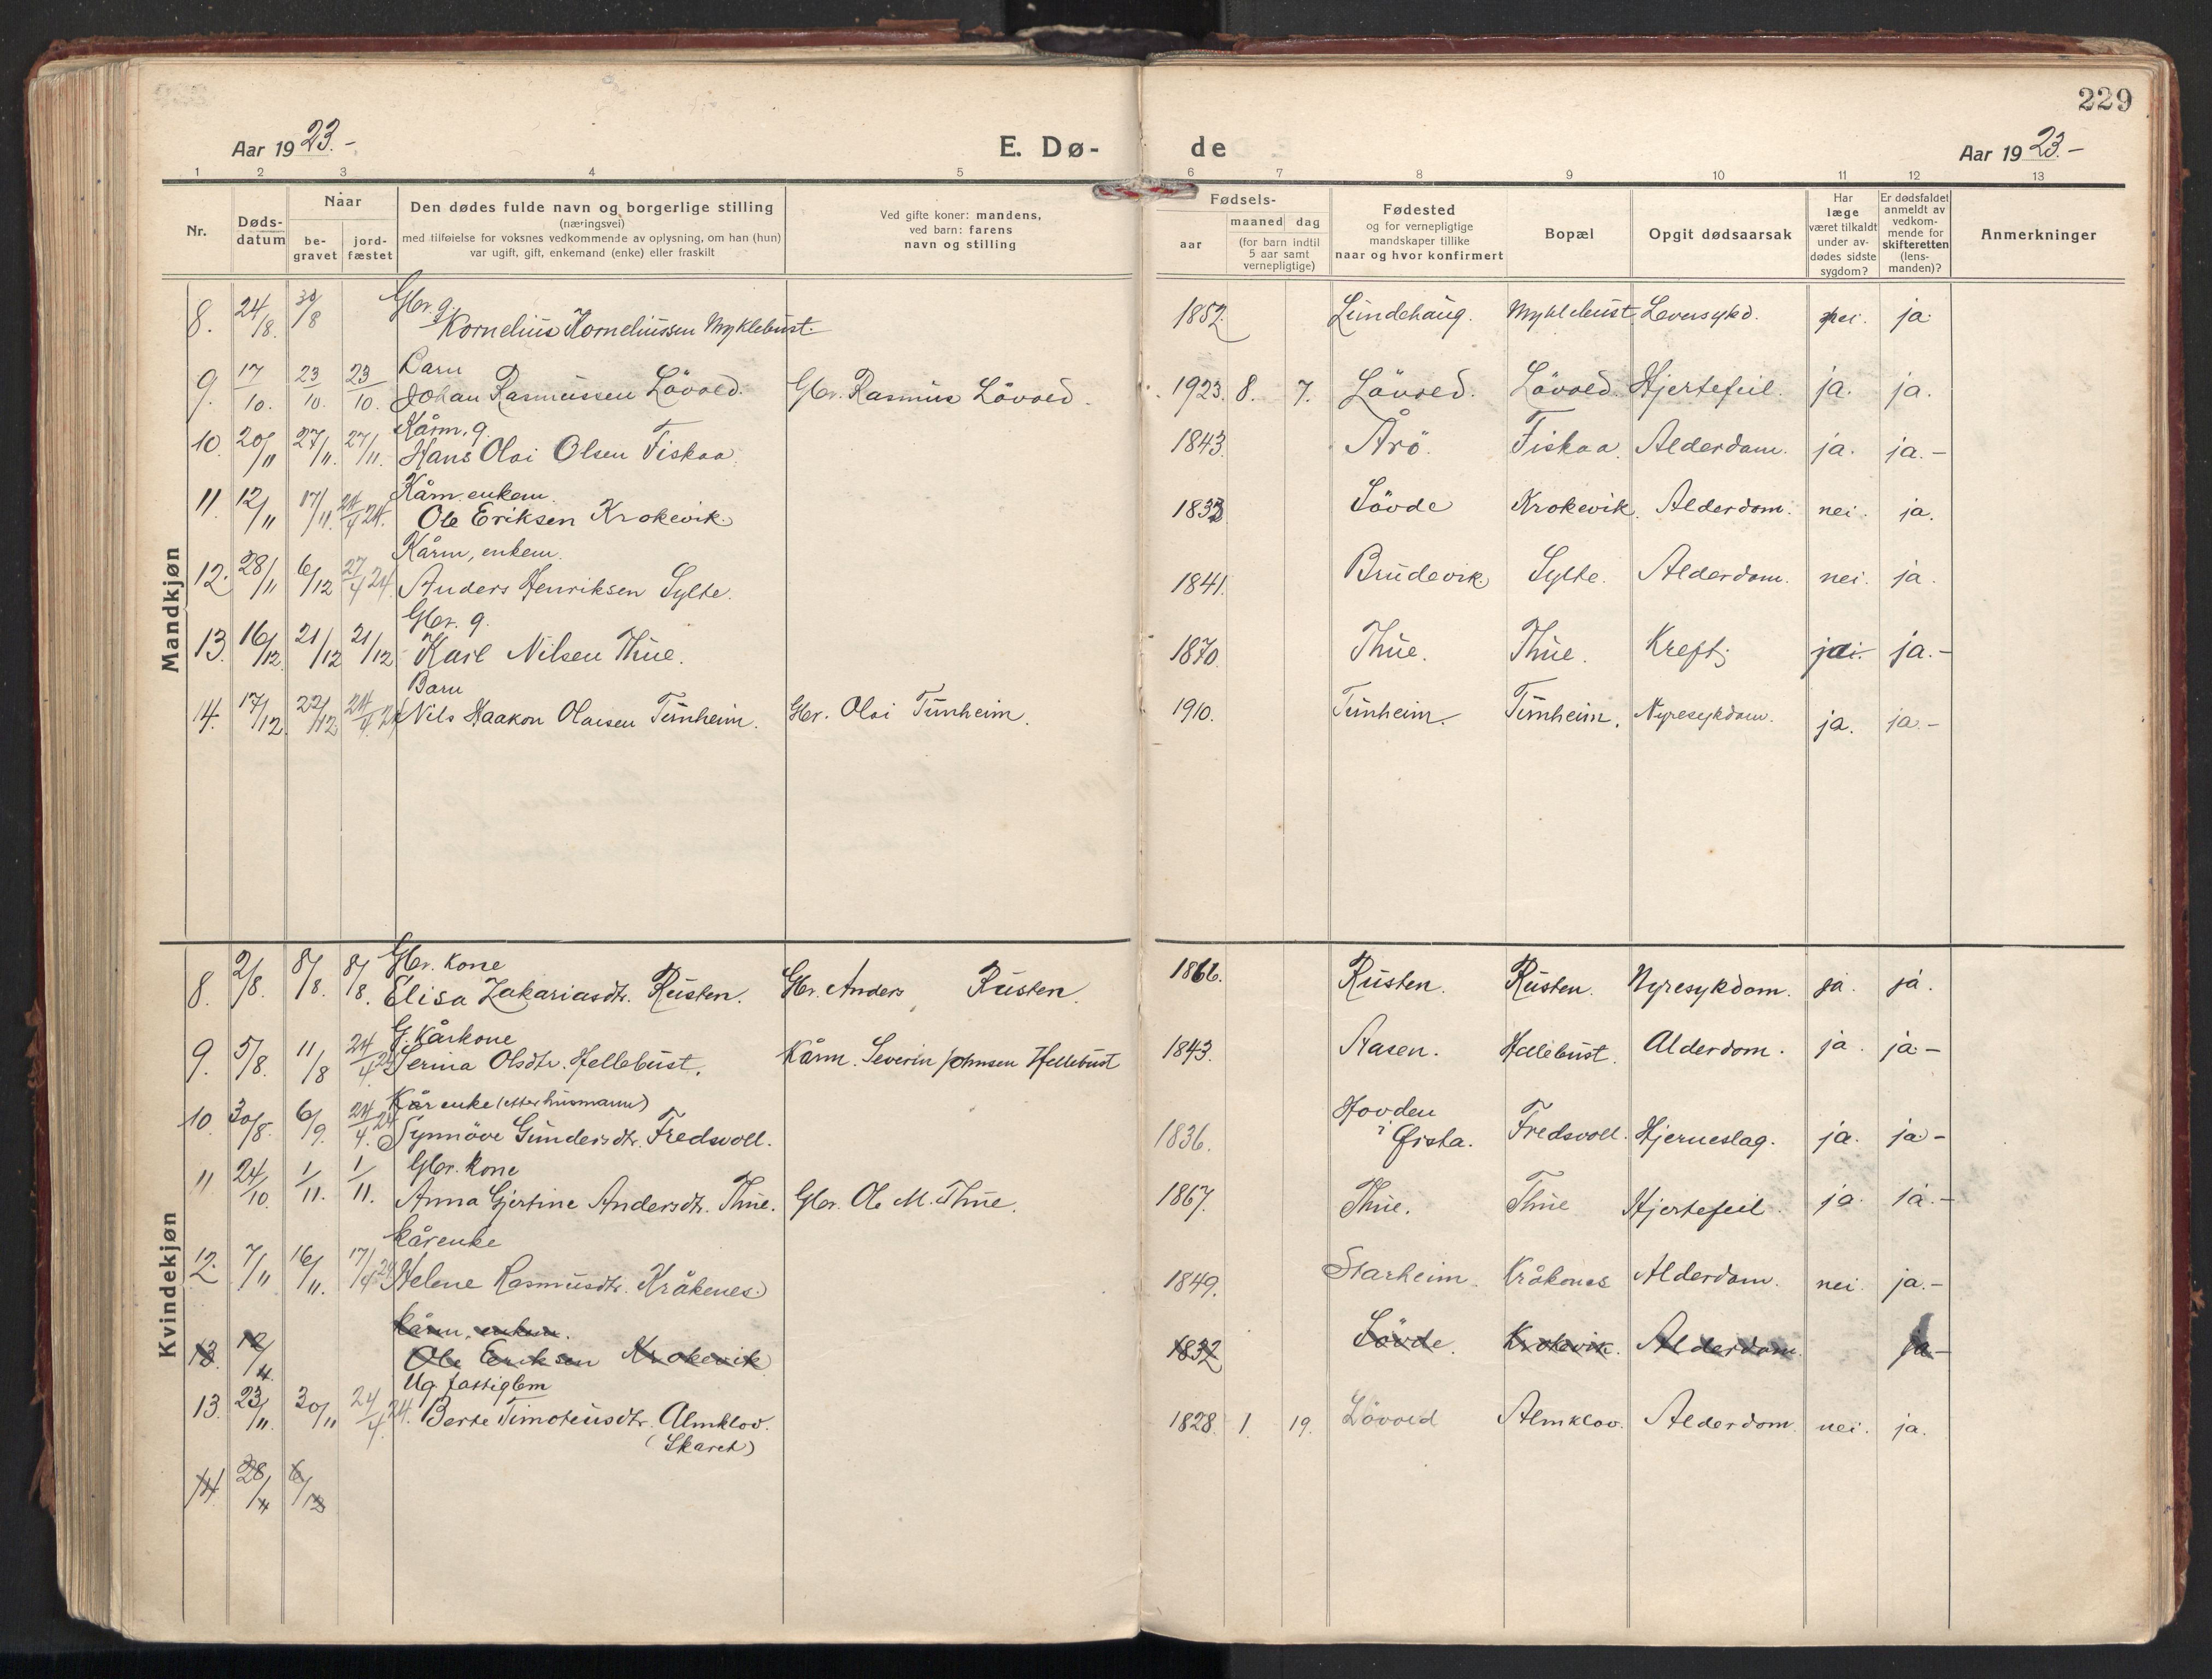 229
Aar 1923.-
E. Dø-
de
Aar 1923.-
1 2 3 4 5 6 7 8 9 10 11 12 13
Nr.
Døds-
datum
Naar
be-
gravet
jord-
fæstet
Den dødes fulde navn og borgerlige stilling
(næringsvei)
med tilføielse for voksnes vedkommende av oplysning, om han (hun)
var ugift, gift, enkemand (enke) eller fraskilt
Ved gifte koner: mandens,
ved barn: farens
navn og stilling
Fødsels-
aar
maaned dag
(for barn indtil
5 aar samt
vernepligtige)
Fødested
og for vernepligtige
mandskaper tillike
naar og hvor konfirmert
Bopæl
Opgit dødsaarsak
Har
læge
været tilkaldt
under av-
dødes sidste
sygdom?
Er dødsfaldet
anmeldt av
vedkom-
mende for
skifteretten
(lens-
manden)?
Anmerkninger
Mandkjøn
Gbr. g.
8. 24/8. 30/8 Kornelius Korneliussen Myklebust. 1852. Lundehaug. Myklebust. Leversykd. nei. ja.
Barn
9. 17/10. 23/10. 23/10. Johan Rasmussen Lövold. Gbr. Rasmus Lövold. 1923. 8. 7. Lövold. Lövold. Hjertefeil. ja. ja.
Kårm. g.
10. 20/11 27/11. 27/11. Hans Olai Olsen Fiskaa. 1843. Årö. Fiskaa. Alderdom. ja. ja.-
Kårm. enkem.
11. 12/11 17/11. 24/4 24. Ole Eriksen Krokevik. 1833 Sövde Krokevik. Alderdom. nei. ja.
Kårm, enkem.
12. 28/11 6/12 27/4 24. Anders Henriksen Sylte. 1841. Brudevik Sylte. Alderdom. nei. ja.
Gbr. g.
13. 16/12. 21/12 21/12 Karl Nilsen Thue. 1870. Thue. Thue. Kreft. ja.-
Barn
14. 17/12. 22/12. 24/4. 24 Nils Haakon Olaisen Tunheim. Gbr. Olai Tunheim. 1910. Tunheim. Tunheim. Nyresykdom. ja. ja.-
Kvindekjøn
Gbr. kone
8. 2/8. 8/8. 8/8. Elisa Zakariasdtr. Rusten. Gbr. Anders Rusten. 1866. Rusten. Rusten. Nyresykdom. ja. ja.
G. Kårkone
9. 5/8. 11/8 24/4. 24 Serina Olsdtr. Hellebust. Kårm. Severin Johnsen Hellebust 1843. Aasen. Hellebust. Alderdom. ja. ja.-
Kårenke (efter husmann)
10. 30/8. 6/9. 24/4. 24 Synnöve Gundersdtr. Fredsvoll. 1836. Hovden i Ørsta. Fredsvoll. Hjerneslag. ja. ja-
Gbr. kone
11 24/10. 1/11. 1/11. Anna Gjertine Andersdtr. Thue. Gbr. Ole M. Thue. 1867. Thue. Thue Hjertefeil. ja. ja.-
kårenke
12. 7/11 16/11. 17/4 24 Helene Rasmusdtr. Kråkenes. 1849. Starheim. Kråkenes Alderdom. nei. ja.-
Kårm, enkem.
13 12/11. Ole Eriksen Krokevik 1832 Sövde. Krokevik. Alderdom. ja-
Ug. fattiglem
13. 23/11. 30/11 24/4 24. Berte Timoteusdtr. Almklov. 1828. 1. 19. Lövold Almklov. Alderdom. nei. ja.
(Skaret)
14. 28/11 6/12